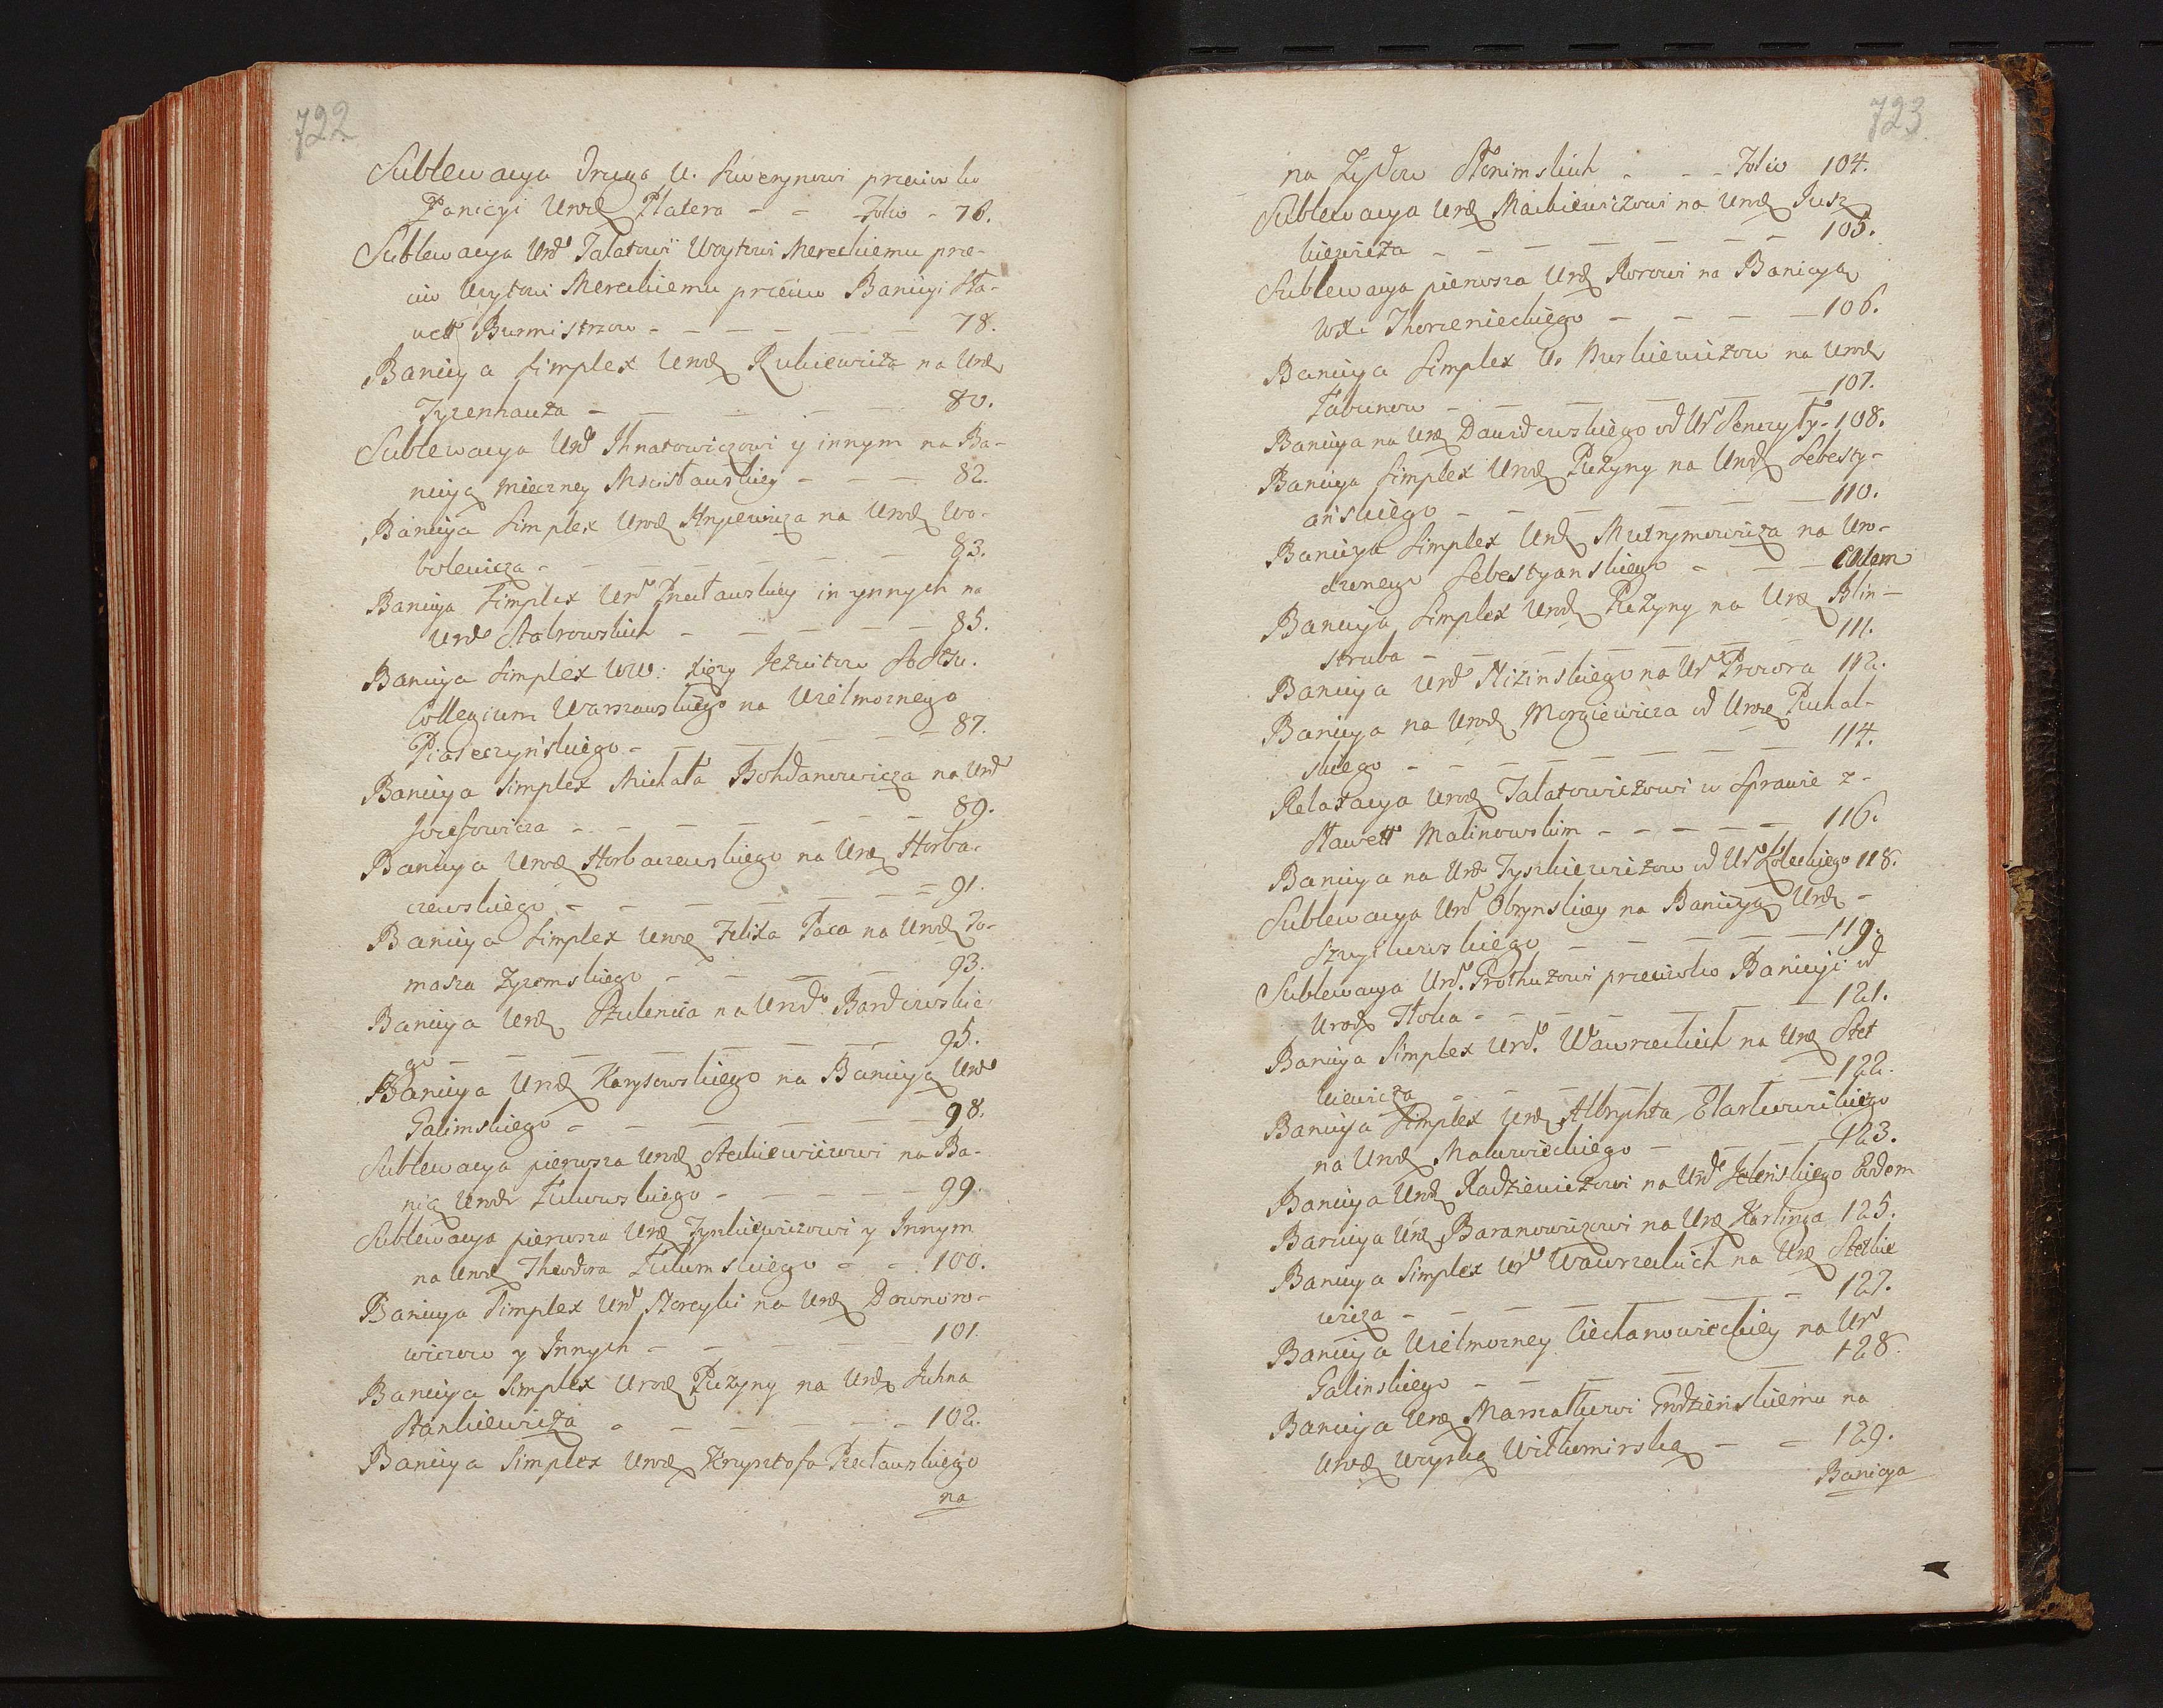 722
Sublewacya Druga U. Suwerynowi przeciwko
Panicyi Urodź Platera - - Folio - 76.
Sublewacya Urd Talatowi Woytowi Mereckiemu prze-
ciw Woytowi Mereckiemu przeciw Banicyi Sła-
wett Burmistrzow - - - - - 78.
Banicya Simplex Urodź Rukiewicza na Urodź
Tyzenhauza - - - - - 80.
Sublewacya Urd Ihnatowiczowi y innym na Ba-
nicyą Miecznej Mscisławskiey - - - 82.
Banicya Simplex Urodź Hryiewicza na Urodź Wo-
bolewicza - - - - - 83.
Banicya Simplex Urd Przecławskiey in ynnych na
Urd Stabrowskich - - - - - 85.
Banicya Simplex WW: Xięży Jezuitow
Collegium Warszawskiego na Wielmoznego
Piaseczyńskiego - - - - - 87.
Banicya Simplex Michała Bohdanowicza na Urd
Jozefowicza - - - - - 89.
Banicya Urodź Horbaczewskiego na Urodź Horba-
czewskiego - - - - - 91.
Banicya Simplex Urodź Felixa Paca na Urodź To-
masza Zyromskiego - - - - 93.
Banicya Urodź Szulenica na Urod Bardzowskie
go - - - - - 95.
Banicya Urodź Karysowskiego na Banicyą Urd
Galimskiego - - - - - 98.
Sublewacya pierwsza Urodź Steckiewiczowi na Ba-
nią Urodź Fukowskiego - - - - 99.
Sublewacya pierwsza Urodź Zynkiewiczowi y Innym
na Urodź Theodora Fukumskiego - - 100.
Banicya Simplex Urd Skoryki na Urodź Downoro-
wiczow y Innych - - - - 101.
Banicya Simplex Urodź Puzyny na Urodź Juhna
Stankiewicza - - - - 102.
Banicya Simplex Urodź Krysztofa Przecławskiego
na
723
na Zydow Słonimskich - - - Folio 104.
Sublewacya Urodź Mackiewiczowi na Urodź Jusz
kiewicza - - - - - 105.
Sublewacya pierwsza Urodź Rorowi na Banicyą
WX. Thorzenieckiego - - - - 106.
Banicya Simplex U. Murkiewiczow na Urodź
Tabunow - - - - - 107.
Banicya na Urodź Dawidowskiego od Ur Penczyłły - 108.
Banicya Simplex Urodź Puzyny na Urodź Sebesty-
ańskiego - - - - - 110.
Banicya Simplex Urodź Muznymowicza na Uro-
dzonego Sebestyanskiego - - - Eodem
Banicya Simplex Urodź Puzyny na Urodź Blin-
struba - - - - - 111.
Banicya Urd Nizinskiego na Ur Prozora 112.
Banicya na Urodź Morgiewicza od Urodź Puchal-
skiego - - - - - 114.
Relaxacya Urodź Talatowiczowi w Sprawie z -
Sławett Malinowskim - - - - - 116.
Banicya na Urd Tyszkiewiczow od Ur Zółeckiego 118.
Sublewacya Urd Obrynskiey na Banicyą Urodź -
Szwykowskiego - - - - - 119.
Sublewacya Urd. Prothuzowi przeciwko Banicyi od
Urodź Hołua - - - - - 121.
Banicya Simplex Urd. Wawrzeckich na Urodź Stet
kiewicza - - - - - 122.
Banicya Simplex Urodź Albryhta Starkowickiego
na Urodź Makowieckiego - - - - 123.
Banicya Urodź Radziewiczowi na Urd Jelenskiego Eodem
Banicya Urodź Baranowiczowi na Urodź Karlinga 125.
Banicya Simplex Ur Wawrzeckich na Urodź Stetkie
wicza - - - - - 127.
Banicya Wielmozney Ciechanowieckiey na Ur
Galinskiego - - - - - 128.
Banicya Urodź Marszałkowi Grodzieńskiemu na
Urodź Woyską Wiłkomirską - - 129.
Banicya